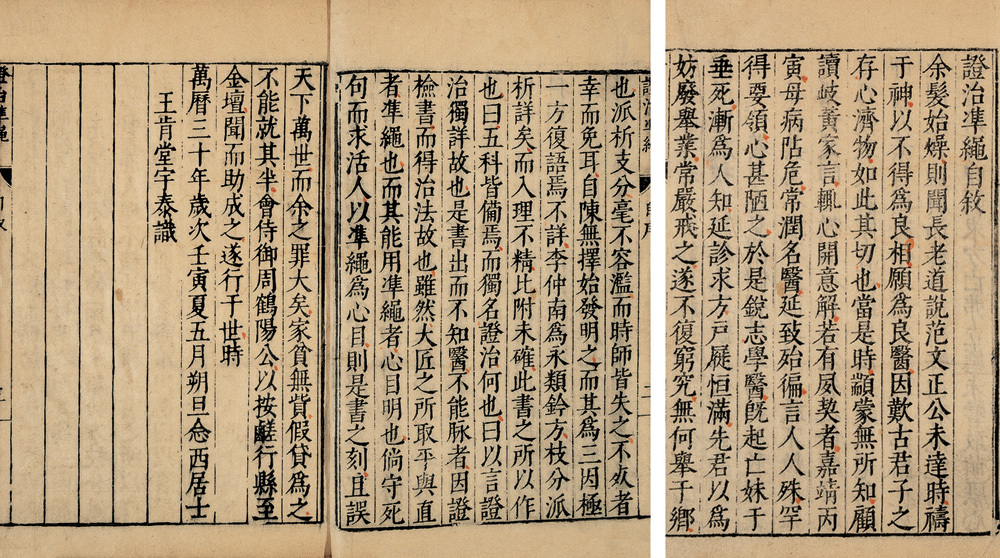 證治凖繩自敘
余髮始燥則聞長老道說范文正公未達時禱
于神以不得爲良相願爲良醫因歎古君子之
存心濟物如此其切也當是時顓蒙無所知顧
讀岐黃家言輒心開意解若有夙契者嘉靖丙
寅母病阽危常潤名醫延致殆徧言人人殊罕
得要領心甚陋之於是銳志學醫旣起亡妹于
垂死漸爲人知延診求方戶屨恒滿先君以爲
妨廢舉業常嚴戒之遂不復窮究無何舉于鄉
也派析支分毫不容濫而時師皆失之不死者
幸而免耳自陳無擇始發明之而其爲三因極
一方復語焉不詳李仲南爲永類鈐方枝分派
析詳矣而入理不精比附未確此書之所以作
也曰五科皆備焉而獨名證治何也曰以言證
治獨詳故也是書出而不知醫不能脉者因證
檢書而得治法故也雖然大匠之所取平與直
者凖繩也而其能用凖繩者心目明也倘守死
句而求活人以凖繩爲心目則是書之刻且誤
天下萬世而余之罪大矣家貧無貲假貸爲之
不能就其半會侍御周鶴陽公以按鹺行縣至
金壇聞而助成之遂行于世時
萬曆三十年歲次壬寅夏五月朔旦念西居士
王肯堂宇泰識